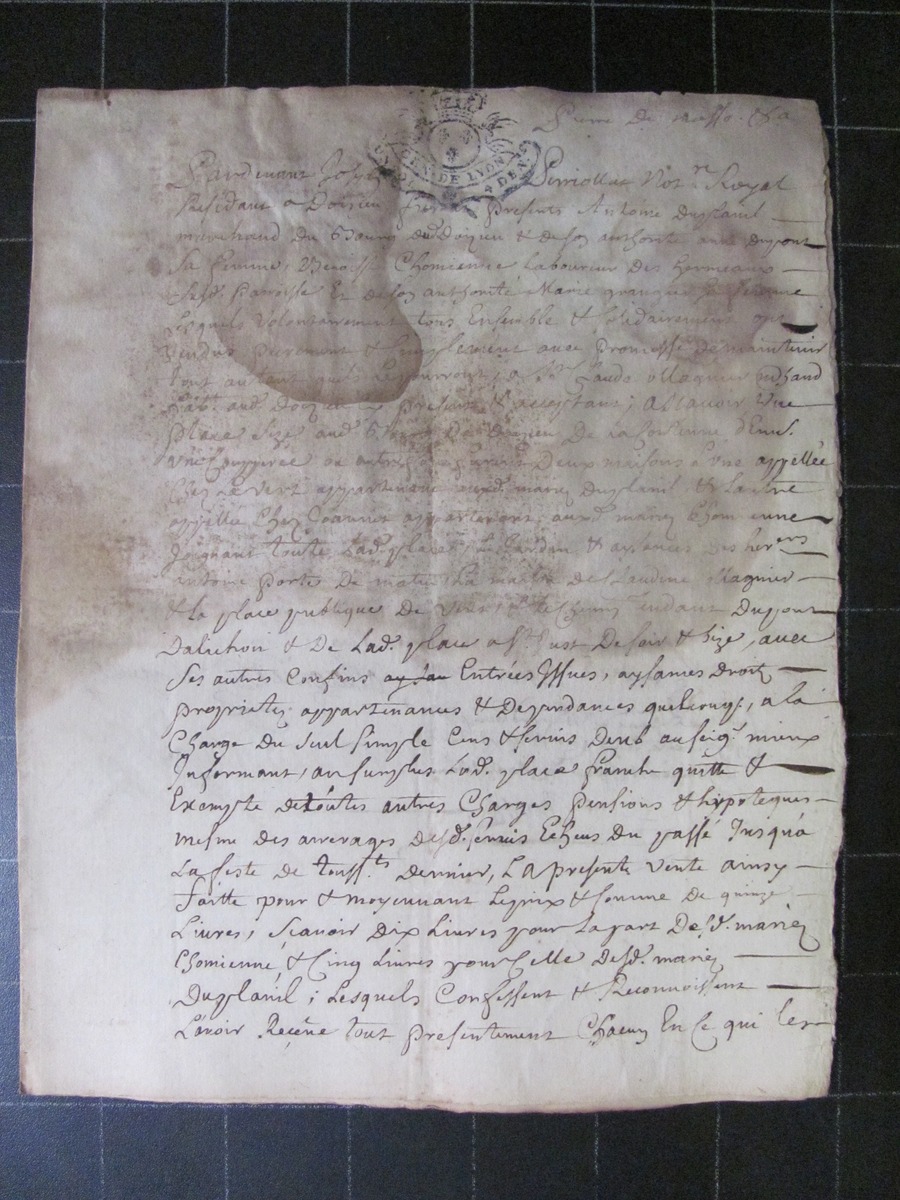 GEN. DE LYON
Pardevant Joseph Perriollat Not.re Royal
Residant a Doizieu presents Antoine Duplanil
marchand du Bourg dud Doizieu & de son authorité anne dupont
Sa femme, Benoist Chomienne Laboureur des
parroisse Et de son authorité Marie sa femme
Lesquels Volontairement tous Ensemble & solidairement ont
Vendus purement & simplement avec promesse de maintenir
tout autant quils Le pourront, a Claude Magnier
present & acceptant; a Scavoir Une
place Size aud Bourg de Doizieu De la
ou autres Deux maisons L'une appellée
Chez Levert appartenant auxd. mariez Duplanil & Lautre
appellée Chez appartenant auxd. mariez Chomienne
Joignant toute Lad. place Le Jardin & aysances des
antoine De matin La maison de Claudine Magnier
& la place publique de tendant Dupont
& De Lad. place a St Just De soir & bize, avec
Ses autres Confins Entrées Yssues, aysances Droits
proprietez appartenances & Dependances quelconq., a la
Charge Du seul simple Cens & servis Deub au seig.r mieux
Informant, au surplus Lad. place franche quitte &
Exempte de toutes autres Charges pensions & hypoteques
mesme des arrerages desd. servis Echeus Du passé Jusqu'a
La feste de touss.ts dernier, La presente vente ainsy
faitte pour & moyennant Le prix & somme de quinze
Livres, Scavoir Dix Livres pour La part Desd. mariez
Chomienne, & Cinq Livres pour Celle desd. mariez
Duplanil; Lesquels Confessent & Reconnoissent
Lavoir Receüe tout presentement Chacun En Ce qui les